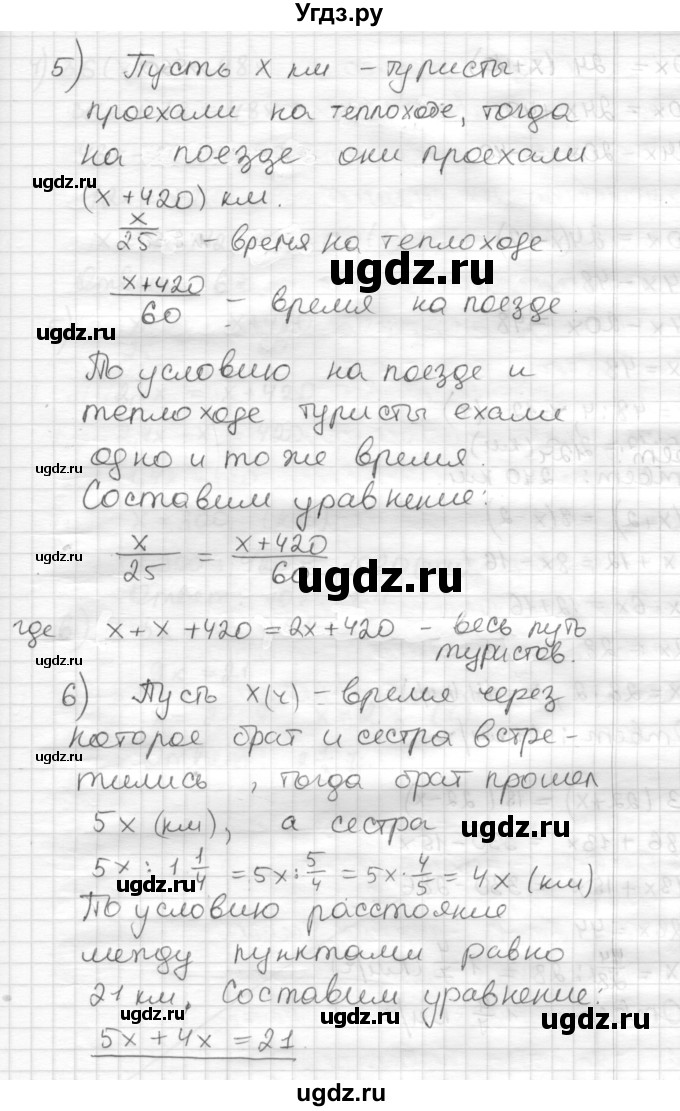 Угдз.ру
5) Пусть x км – туристы
проехали на теплоходе, тогда
на поезде они проехали
ugdz.ru
(x + 420) км.
x/25 – время на теплоходе.
ugdz.ru
(x+420)/60 – время на поезде.
ugdz.ru
По условию на поезде и
теплоходе туристы ехали
одно и то же время.
ugdz.ru
Составим уравнение:
x/25 = (x+420)/60
ugdz.ru
ugdz.ru
где x + x + 420 = 2x + 420 – весь путь
туристов.
ugdz.ru
6) Пусть x(ч) – время через
которое брат и сестра встре-
ugdz.ru
тились, тогда брат прошел
5x (км), а сестра
ugdz.ru
5x : 1 1/4 = 5x : 5/4 = 5x · 4/5 = 4x (км)
ugdz.ru
По условию расстояние
между пунктами равно
21 км. Составим уравнение:
ugdz.ru
ugdz.ru
5x + 4x = 21
ugdz.ru